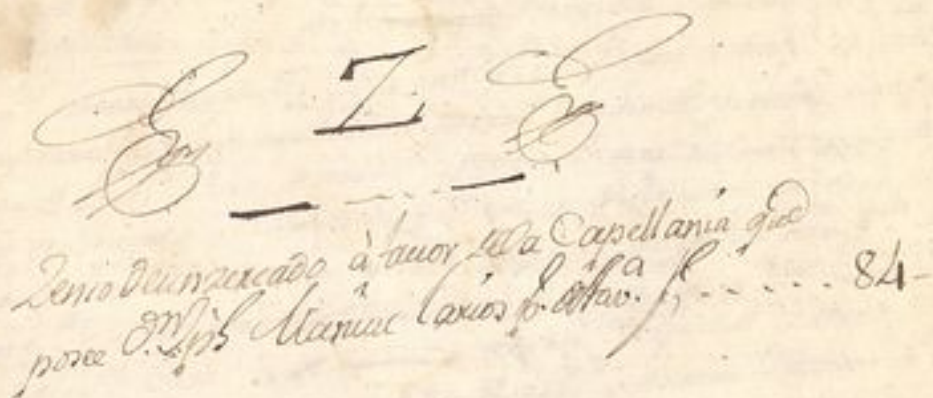 Z
Zenso de un mercado à fauor de la Capellania que
posee Dn. Jph Manuel Larios f. 84